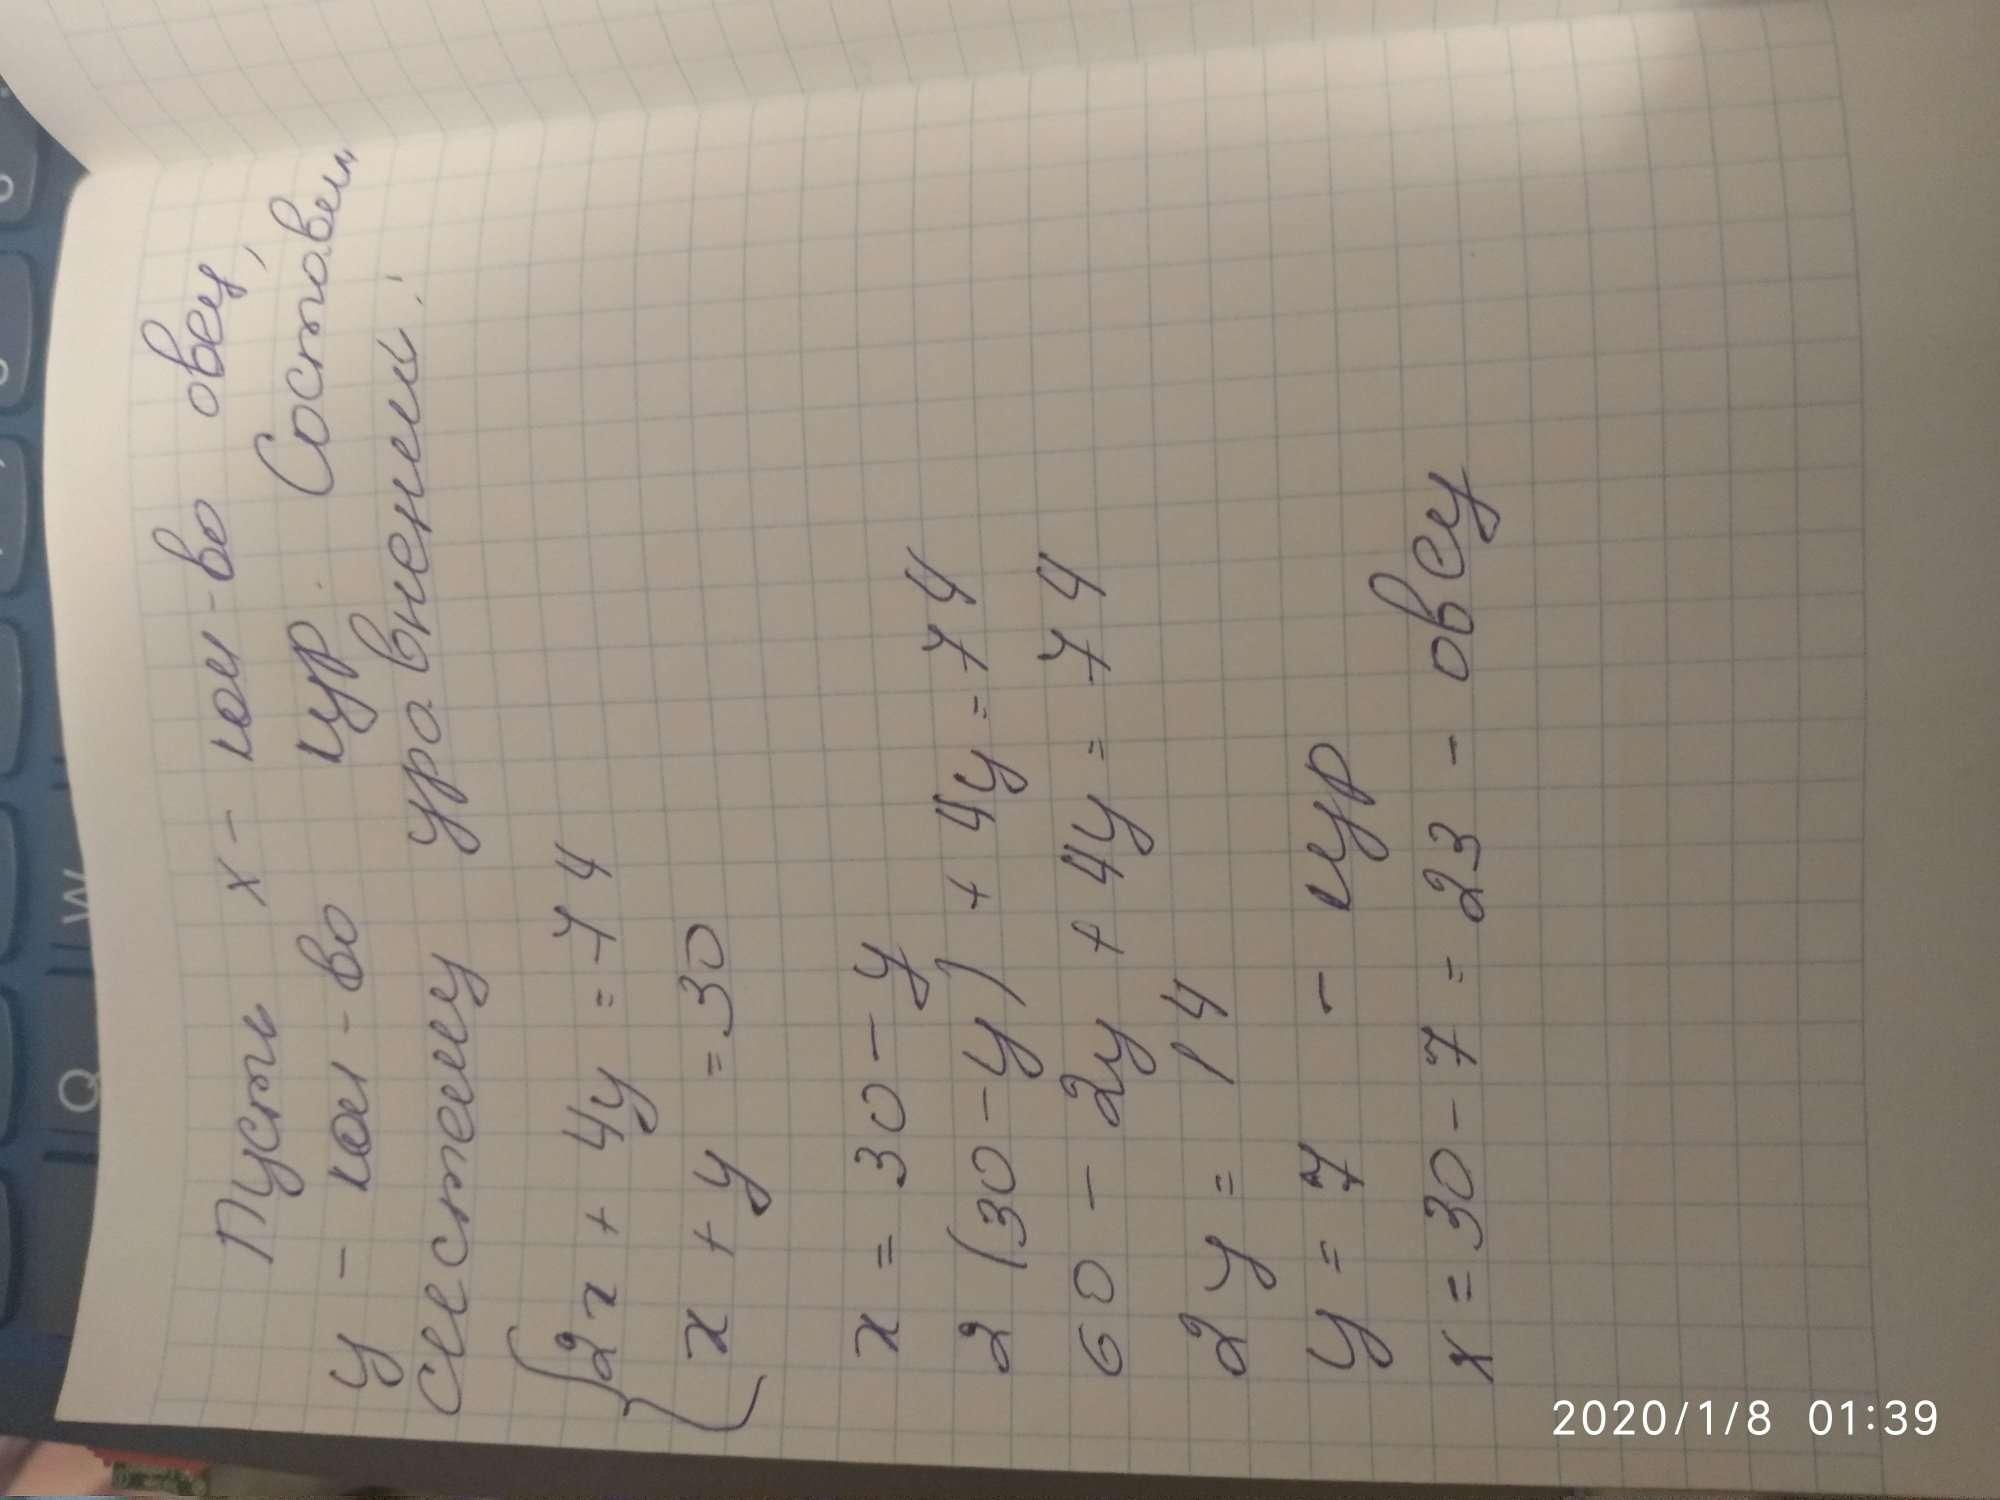 Пусть x - кол-во овец,
y - кол-во кур. Составим
систему уравнений:
2x + 4y = 74
x + y = 30
x = 30 - y
2(30-y) + 4y = 74
60 - 2y + 4y = 74
2y = 14
y = 7 - кур
x = 30 - 7 = 23 - овец
2020/1/8 01:39
Q
W